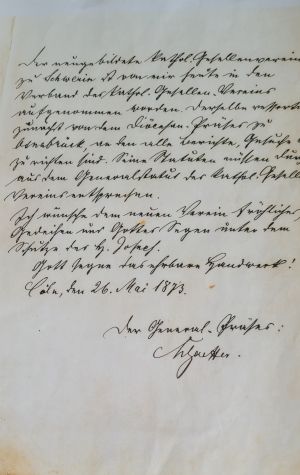 Der neugebildete kathol. Gesellenverein
zu Schwerin ist von mir heute in den
Verband des kathol. Gesellen-Vereins
aufgenommen worden. Derselbe ressortirt
zunächst von dem Diöcesan-Präses zu
Osnabrück, an den alle Berichte, Gesuche
zu richten sind. Seine Statuten müssen
aus dem Generalstatut des kathol. Gesellen
Vereins entsprechen.
Ich wünsche dem neuen Verein fröhliches
Gedeihen und Gottes Segen unter dem
Schutze des h. Joseph.
Gott segne das ehrbare Handwerk!
Cöln, den 26. Mai 1873.
Der General-Präses:
Schaeffer.